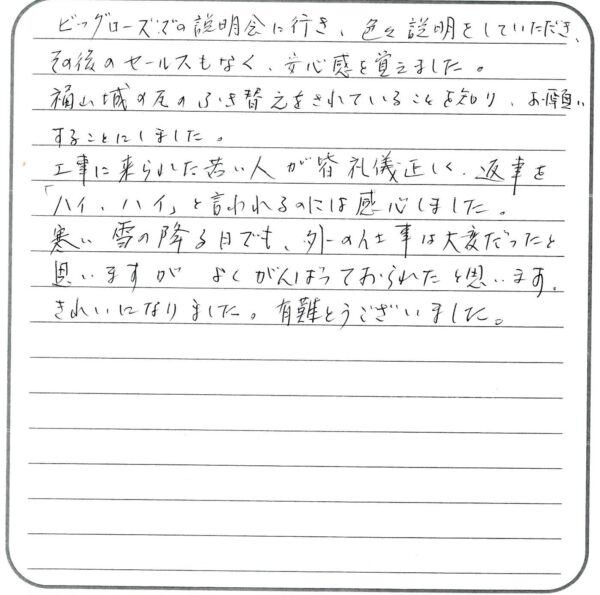 ビッグローズでの説明会に行き、色々説明をしていただき、
その後のセールスもなく、安心感を覚えました。
福山城の瓦のふき替えをされていることを知り、お願い
することにしました。
工事に来られた若い人が皆礼儀正しく、返事を
「ハイ、ハイ」と言われるのには感心しました。
寒い雪の降る日でも、外の仕事は大変だったと
思いますが よくがんばっておられたと思います。
きれいになりました。有難とうございました。